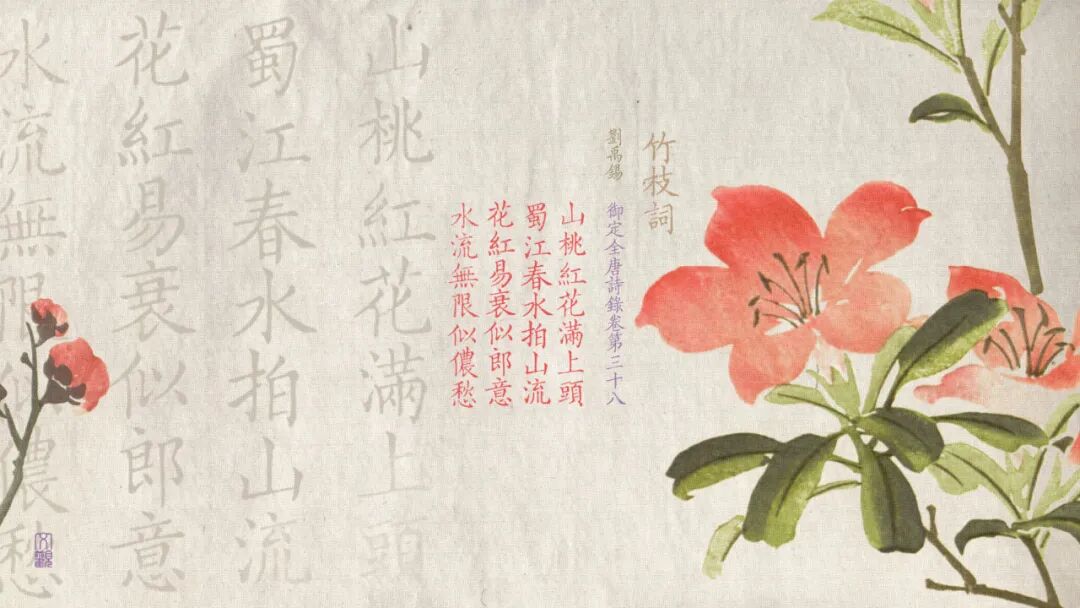 竹枝詞
劉禹錫 御定全唐詩錄卷第三十八
山桃紅花滿上頭
蜀江春水拍山流
花紅易衰似郎意
水流無限似儂愁
山桃紅花滿上頭
蜀江春水拍山流
花紅易衰似郎意
水流無限似儂愁